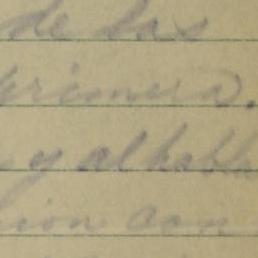 de las
primera.
y al habl
ion con